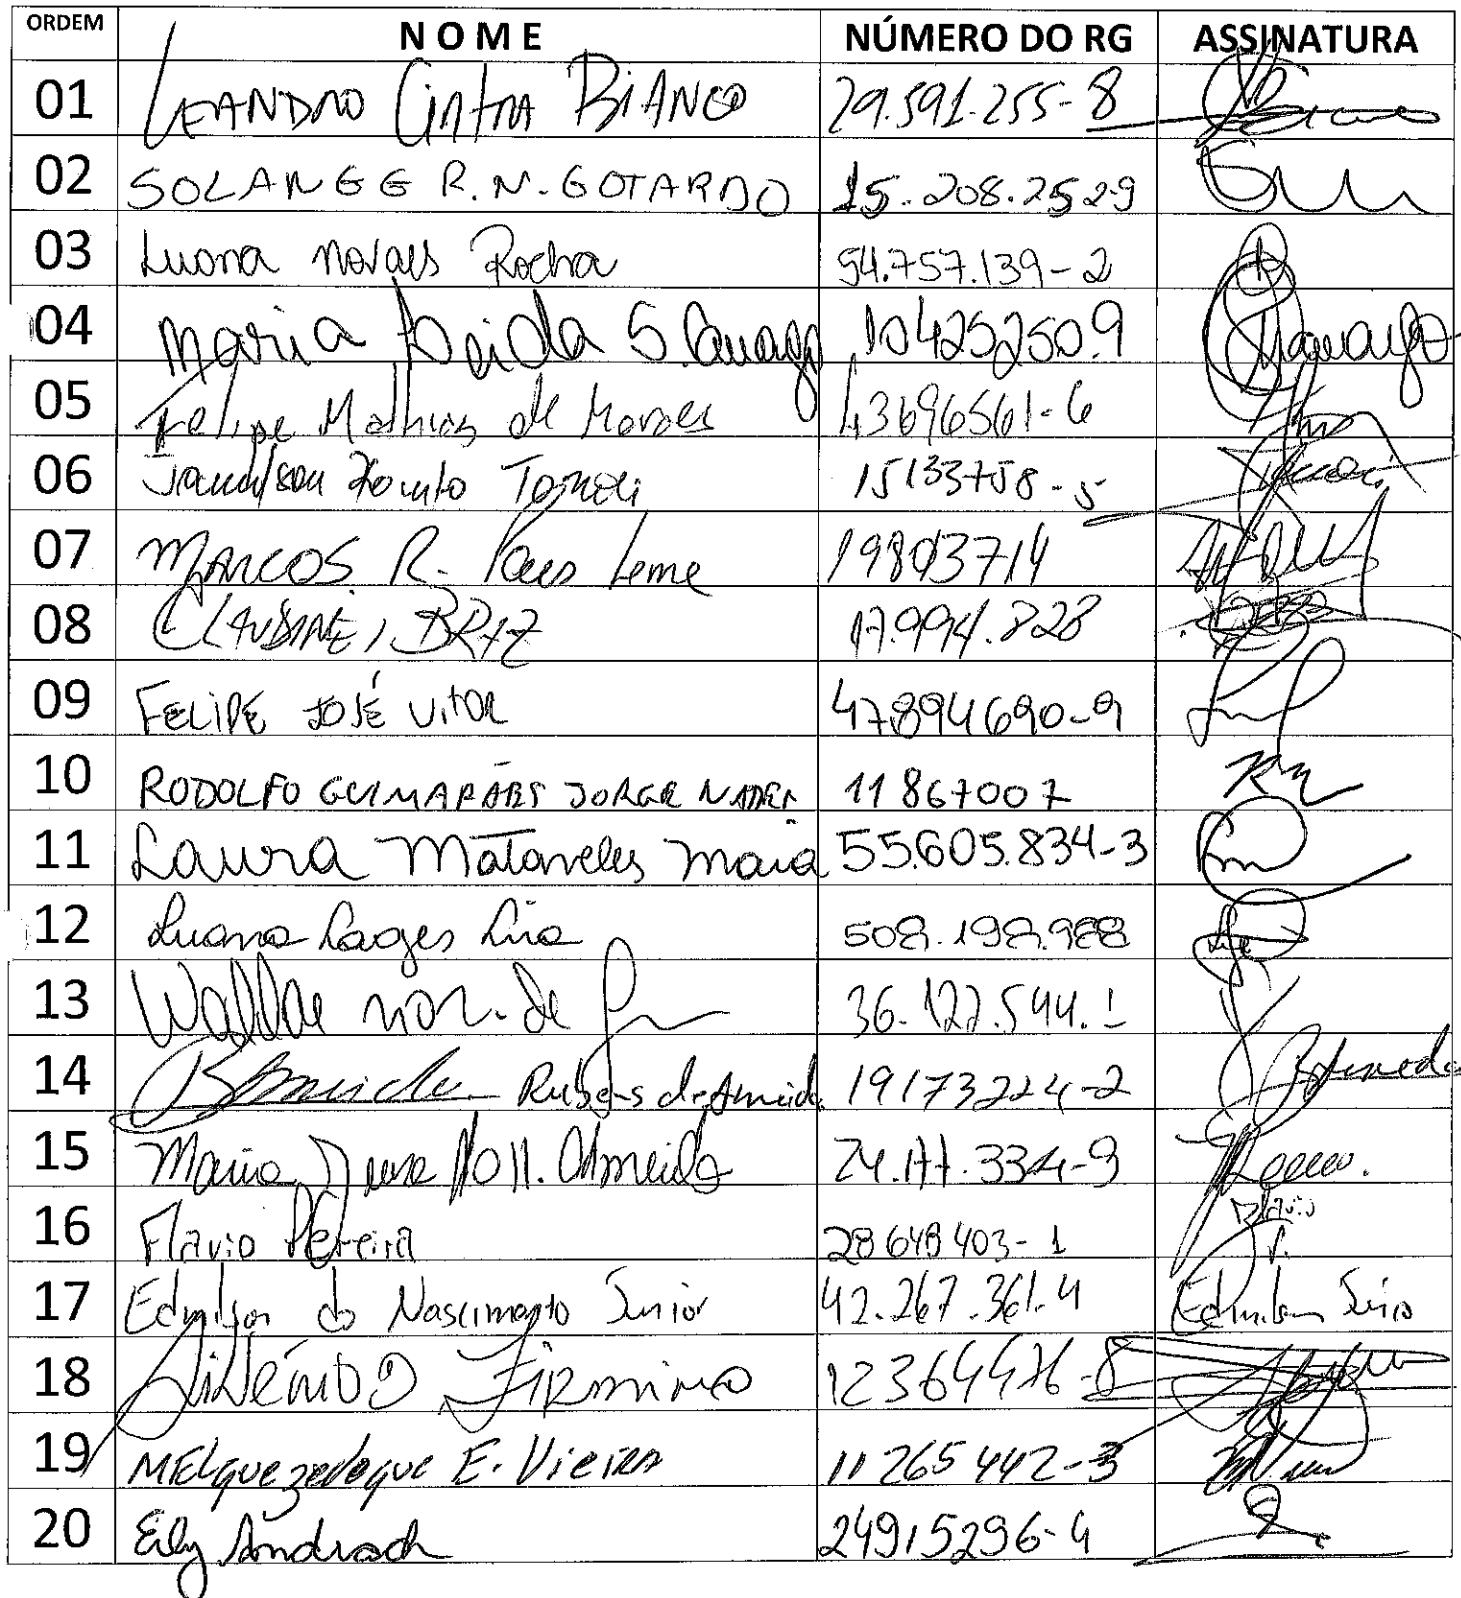 ORDEM NOME NÚMERO DO RG ASSINATURA
01 LEANDRO Cintra BiANCO 29.591.255-8
02 SOLANGE R.N. GOTARDO 15.208.252-9
03 Luana Novaes Rocha 54.757.139-2
04 Maria S. Camargo 104252509 Camargo
05 Felipe Mathias de Moraes 43696561-6
06 15133758-5
07 MARCOS R. Paes Leme 19803714
08 CLAUDINEI BRAZ 17.994.828
09 FELIPE JOSÉ VITOR 47894690-9
10 RODOLFO GUIMARÃES JORGE NADER 11867007
11 Laura Mataveles Maia 55.605.834-3
12 Luana Lages Lira 508.198.988
13 de 36.122.544.1
14 Rubens de Almeida 19173224-2 Almeida
15 Maria Almeida 24.177.334-9
16 Flavio Pereira 28648403-1 Flavio P.
17 Edmilson do Nascimento Junior 42.267.361.4 Edmilson Junior
18 FIRMINO 12364476-8
19 MELquezedeque E. Vieira 11265442-3
20 Andrade 24915296-4